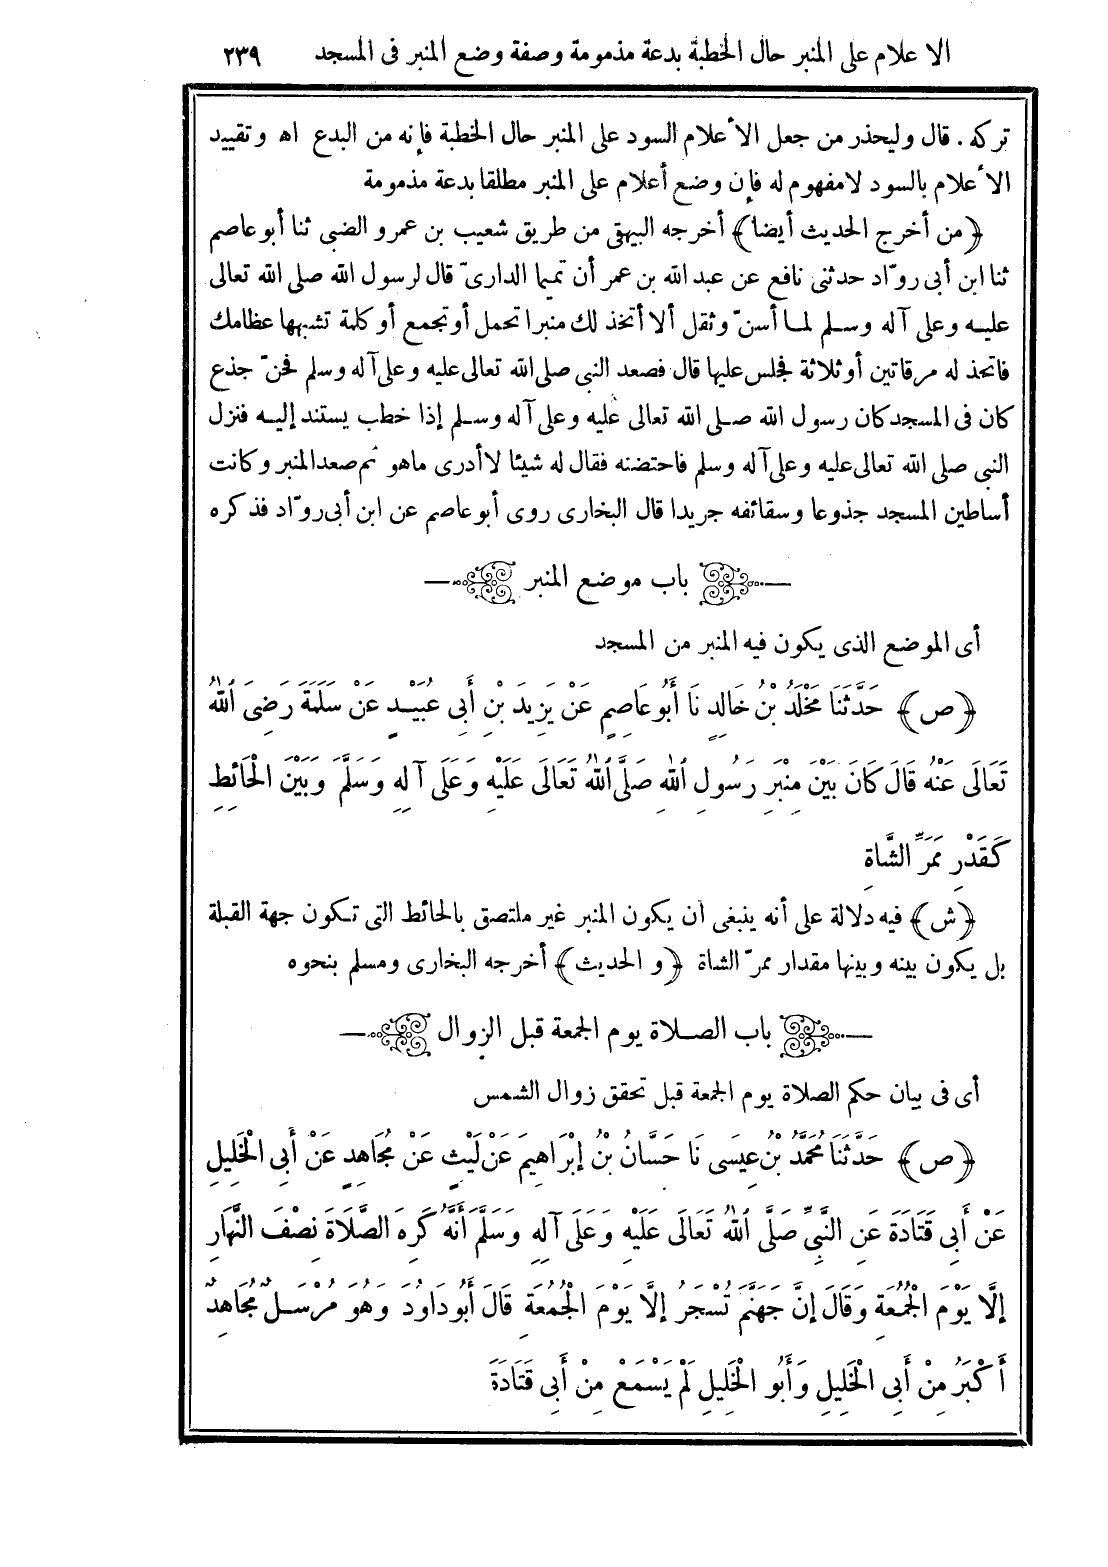 الاعلام على المنبر حال الخطبة بدعة مذمومة وصفة وضع المنبر فى المسجد ٢٣٩
تركه . قال وليحذر من جعل الأعلام السود على المنبر حال الخطبة فإنه من البدع اه وتقييد
الأعلام بالسود لامفهوم له فإن وضع أعلام على المنبر مطلقا بدعة مذمومة
﴿من أخرج الحديث أيضا﴾ أخرجه البيهقى من طريق شعيب بن عمرو الضبى ثنا أبو عاصم
ثنا ابن أبى روّاد حدثنى نافع عن عبد الله بن عمر أن تميما الدارىّ قال لرسول الله صلى الله تعالى
عليه وعلى آله وسلم لما أسنّ وثقل ألا أتخذ لك منبرا تحمل أوتجمع أو كلمة تشبهها عظامك
فاتخذ له مرقاتين أو ثلاثة فجلس عليها قال فصعد النبى صلى الله تعالى عليه وعلى آله وسلم فحنّ جذع
كان فى المسجد كان رسول الله صلى الله تعالى عليه وعلى آله وسلم إذا خطب يستند إليه فنزل
النبى صلى الله تعالى عليه وعلى آله وسلم فاحتضنه فقال له شيئا لاأدرى ماهو ثم صعد المنبر وكانت
أساطين المسجد جذوعا وسقائفه جريدا قال البخارى روى أبو عاصم عن ابن أبى روّاد فذكره
باب موضع المنبر
أى الموضع الذى يكون فيه المنبر من المسجد
﴿ص﴾ حَدَّثَنَا مَخْلَدُ بْنُ خَالِدٍ نَا أَبُو عَاصِمٍ عَنْ يَزِيدَ بْنِ أَبِى عُبَيْدٍ عَنْ سَلَمَةَ رَضِىَ اللهُ
تَعَالَى عَنْهُ قَالَ كَانَ بَيْنَ مِنْبَرِ رَسُولِ اللهِ صَلَّى اللهُ تَعَالَى عَلَيْهِ وَعَلَى آلِهِ وَسَلَّمَ وَبَيْنَ الْحَائِطِ
كَقَدْرِ مَمَرِّ الشَّاةِ
﴿ش﴾ فيه دلالة على أنه ينبغى أن يكون المنبر غير ملتصق بالحائط التى تكون جهة القبلة
بل يكون بينه وبينها مقدار ممرّ الشاة ﴿والحديث﴾ أخرجه البخارى ومسلم بنحوه
باب الصلاة يوم الجمعة قبل الزوال
أى فى بيان حكم الصلاة يوم الجمعة قبل تحقق زوال الشمس
﴿ص﴾ حَدَّثَنَا مُحَمَّدُ بْنُ عِيسَى نَا حَسَّانُ بْنُ إِبْرَاهِيمَ عَنْ لَيْثٍ عَنْ مُجَاهِدٍ عَنْ أَبِى الْخَلِيلِ
عَنْ أَبِى قَتَادَةَ عَنِ النَّبِىِّ صَلَّى اللهُ تَعَالَى عَلَيْهِ وَعَلَى آلِهِ وَسَلَّمَ أَنَّهُ كَرِهَ الصَّلَاةَ نِصْفَ النَّهَارِ
إِلَّا يَوْمَ الْجُمُعَةِ وَقَالَ إِنَّ جَهَنَّمَ تُسْجَرُ إِلَّا يَوْمَ الْجُمُعَةِ قَالَ أَبُو دَاوُدَ وَهُوَ مُرْسَلٌ مُجَاهِدٌ
أَكْبَرُ مِنْ أَبِى الْخَلِيلِ وَأَبُو الْخَلِيلِ لَمْ يَسْمَعْ مِنْ أَبِى قَتَادَةَ